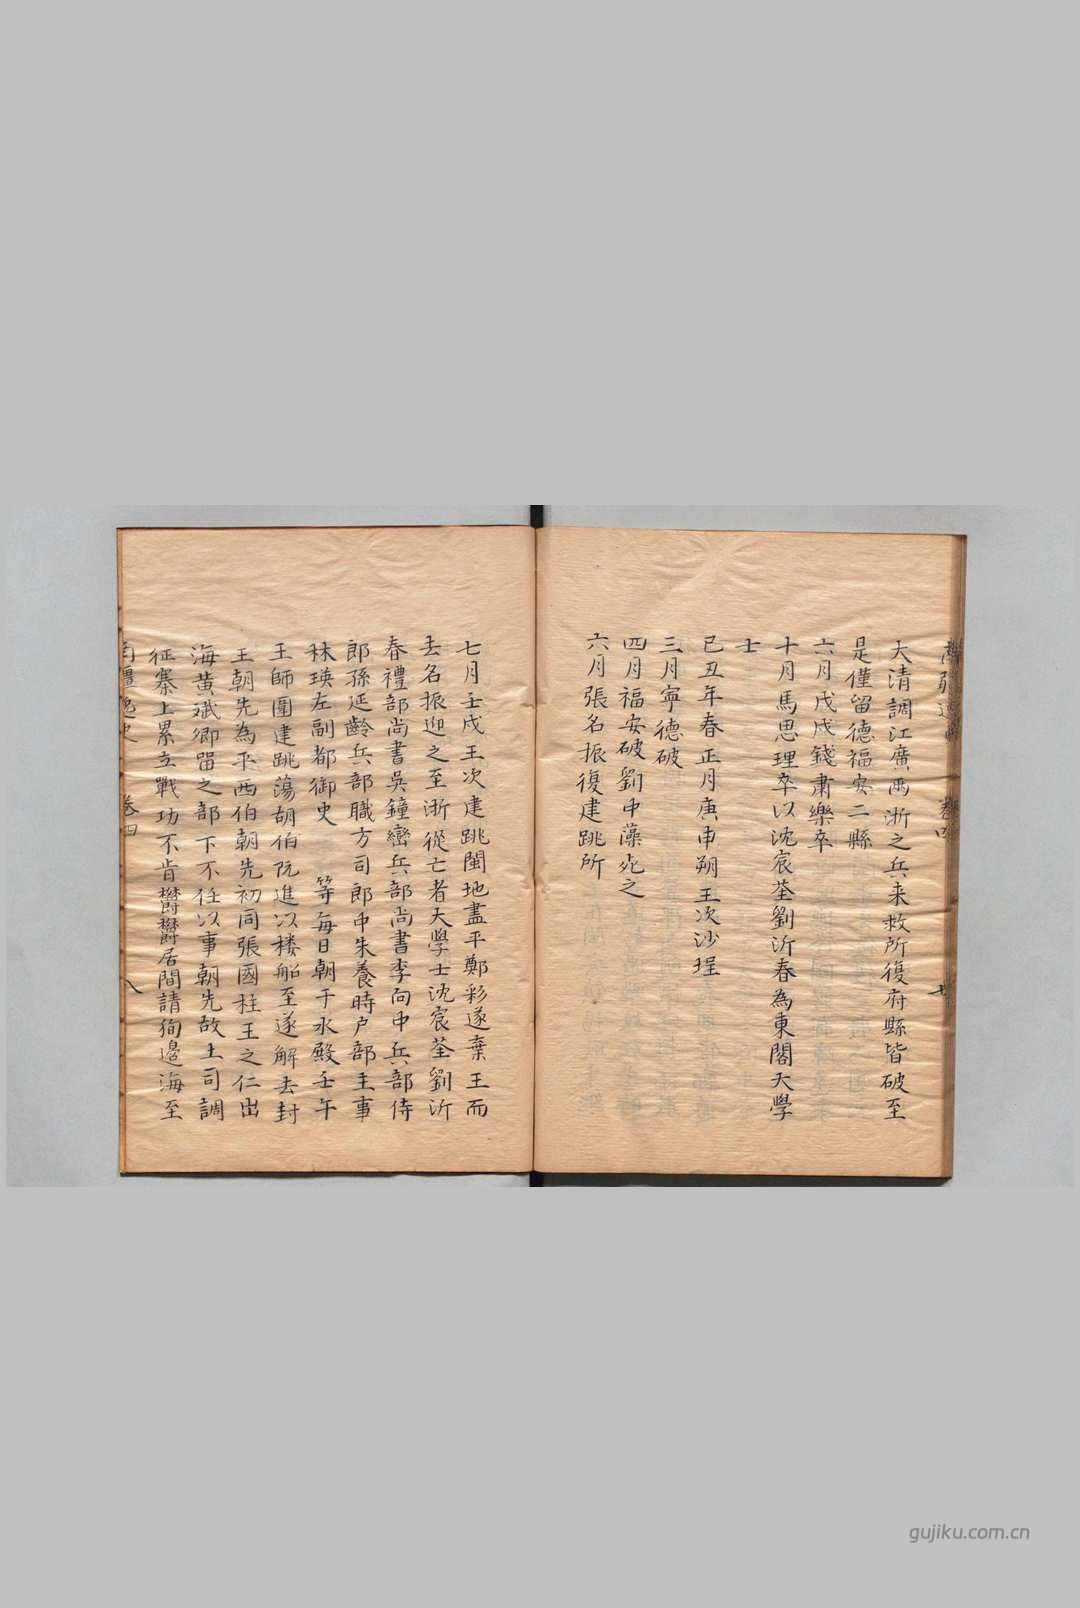 大清調江廣兩浙之兵来救所復府縣皆破至
是僅留德福安二縣
六月戊戌錢肅樂卒
十月馬思理卒以沈宸荃劉沂春為東閣大學
士
己丑年春正月庚申朔王次沙埕
三月寧德破
四月福安破劉中藻死之
六月張名振復建跳所
七月壬戌王次建跳閩地盡平鄭彩遂棄王而
去名振迎之至浙從亡者大學士沈宸荃劉沂
春禮部尚書吳鐘巒兵部尚書李向中兵部侍
郎孫延齡兵部職方司郎中朱養時户部主事
林瑛左副都御史 等每日朝于水殿壬午
王師圍建跳蕩胡伯阮進以楼船至遂解去封
王朝先為平西伯朝先初同張國柱王之仁出
海黄斌卿畱之部下不任以事朝先故土司調
征寨上累立戰功不肯欝欝居間請徇邊海至
南疆逸史 卷四 八
gujiku.com.cn